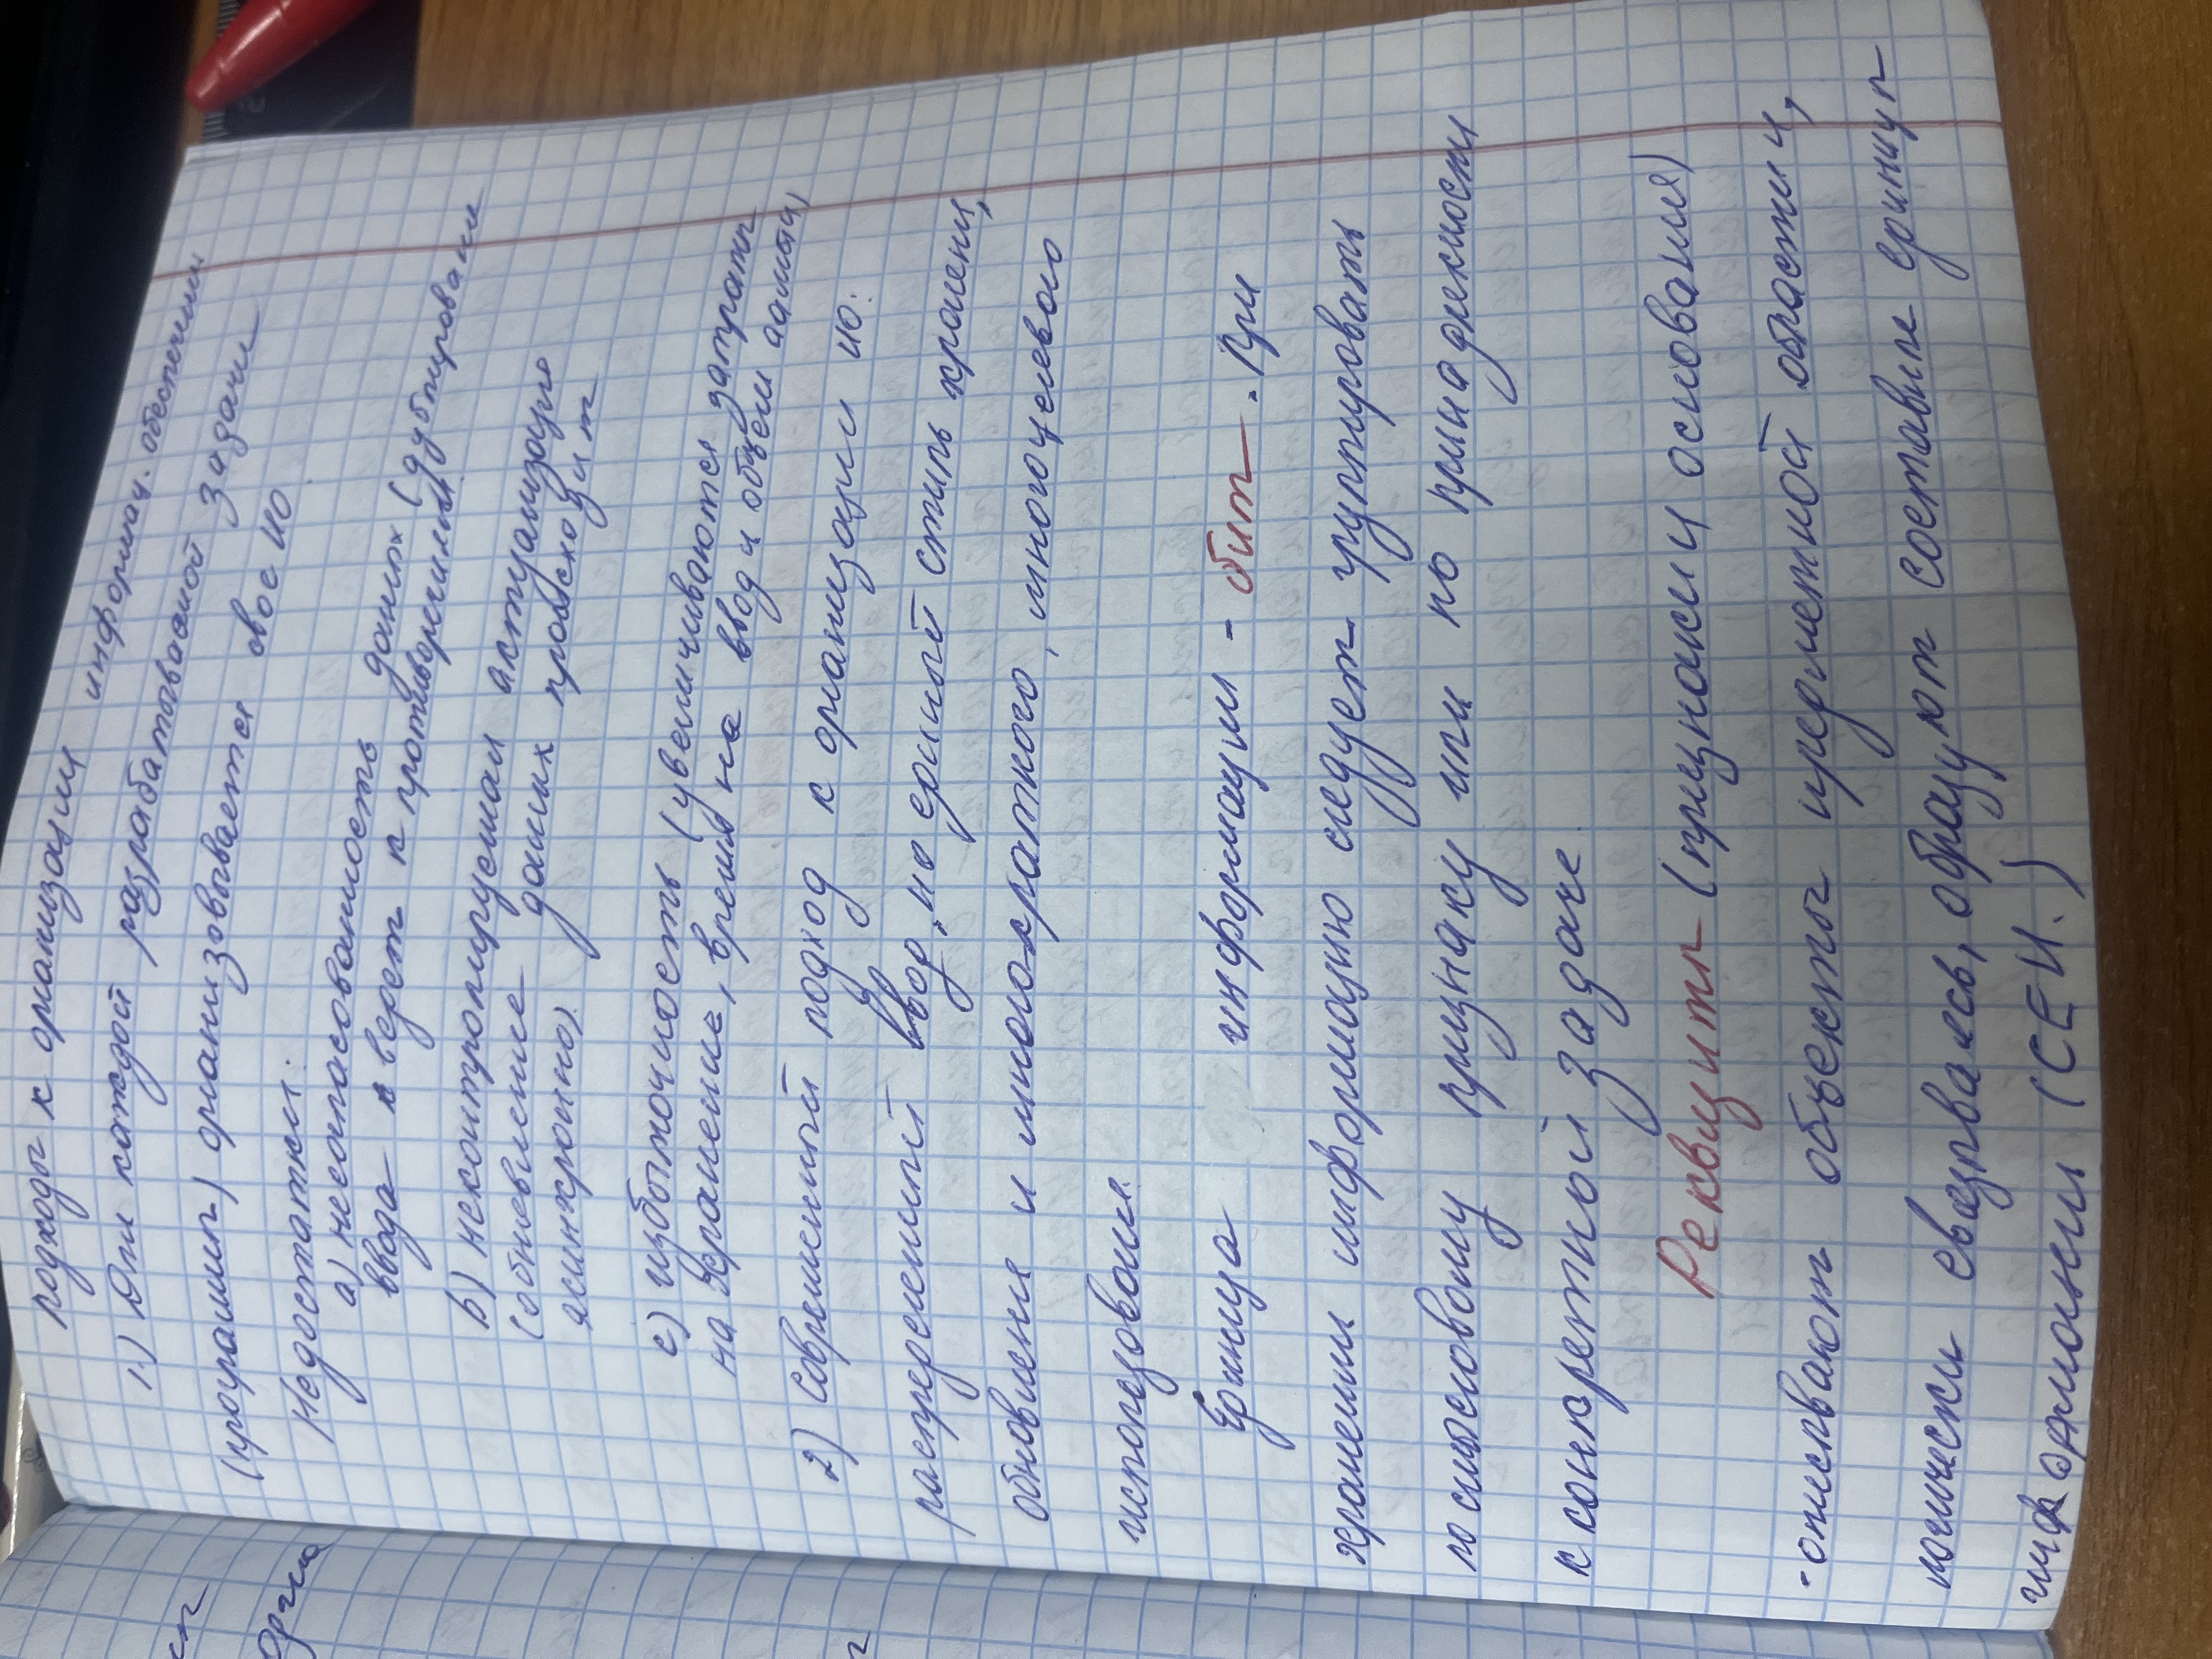 подходы к организации информац. обеспечения
1) Для каждой разрабатываемой задачи
(программы) организовывается свое ИО.
Недостатки:
а) несогласованность данных (дублирование
ввода ведет к противоречиям
b) неконтролируемая актуализация
(обновление данных происходит
асинхронно)
c) избыточность (увеличиваются затраты
на хранение, время на ввод и общем памяти)
2) Современный подход к организации ИО.
распределенный ввод, но единый стиль хранения,
обновление и многократного, многоцелевого
использования.
Единица информации - бит. При
хранении информацию следует группировать
по смысловому признаку или по принадлежности
к конкретной задаче.
Реквизиты (признаки и основания)
- описывают объекты предметной области,
логически связываясь, образуют составные единицы
информации (СЕИ.)
ст
орга